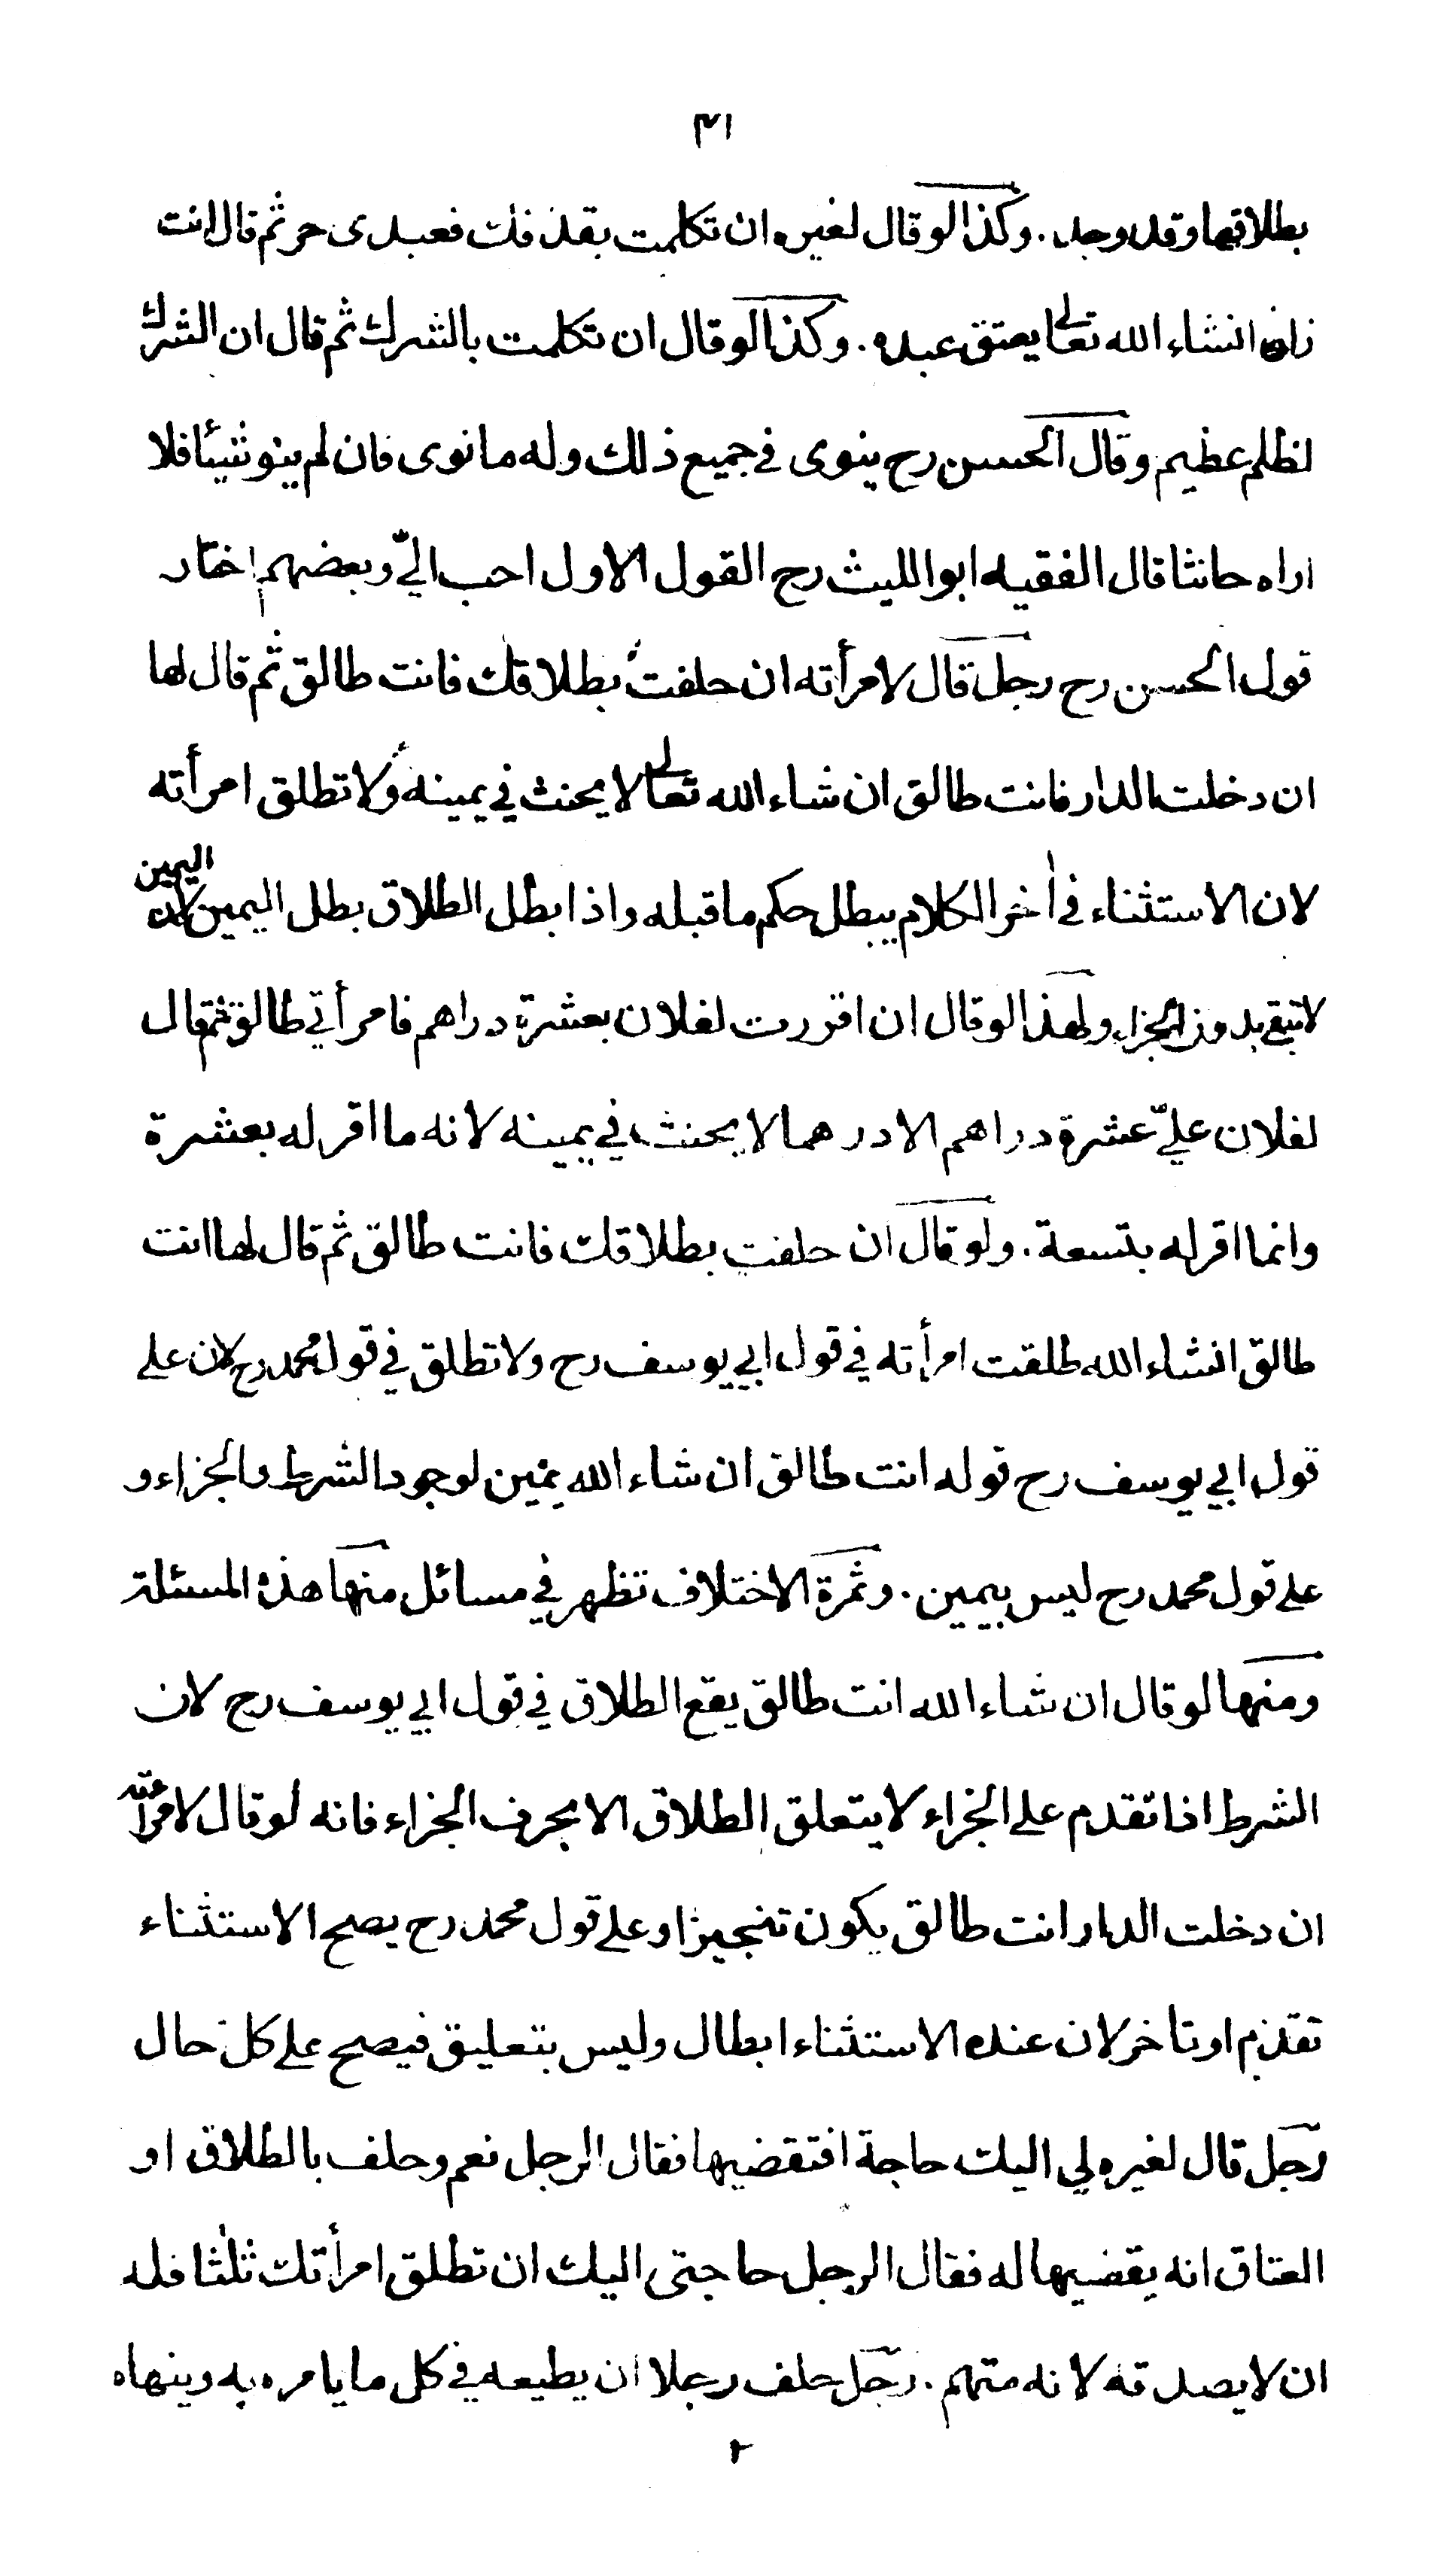 ٣١
بطلاقها وقد وجد . وكذا لو قال لغيره ان تكلمت بقذفك فعبدى حر ثم قال انت
زان انشاء الله تعالى يعتق عبده . وكذا لو قال ان تكلمت بالشرك ثم قال ان الشرك
لظلم عظيم وقال الحسن رح ينوى في جميع ذلك وله ما نوى فان لم ينو شيئا فلا
اراه حانثا قال الفقيه ابو الليث رح القول الاول احب اليّ وبعضهم اختار
قول الحسن رح رجل قال لامرأته ان حلفت بطلاقك فانت طالق ثم قال لها
ان دخلت الدار فانت طالق ان شاء الله تعالى لا يحنث في يمينه ولا تطلق امرأته
لان الاستثناء في اخر الكلام يبطل حكم ما قبله واذا بطل الطلاق بطل اليمين لان اليمين
لا تبقي بدون الجزاء ولهذا لو قال ان اقررت لفلان بعشرة دراهم فامرأتي طالق ثم قال
لفلان عليّ عشرة دراهم الا درهما لا يحنث في يمينه لانه ما اقر له بعشرة
وانما اقر له بتسعة . ولو قال ان حلفت بطلاقك فانت طالق ثم قال لها انت
طالق انشاء الله طلقت امرأته في قول ابي يوسف رح ولا تطلق في قول محمد رح لان على
قول ابي يوسف رح قوله انت طالق ان شاء الله يمين لوجود الشرط والجزاء و
على قول محمد رح ليس بيمين . وثمرة الاختلاف تظهر في مسائل منها هذه المسئلة
ومنها لو قال ان شاء الله انت طالق يقع الطلاق في قول ابي يوسف رح لان
الشرط اذا تقدم على الجزاء لا يتعلق الطلاق الا بحرف الجزاء فانه لو قال لامرأته
ان دخلت الدار انت طالق يكون تنجيزا وعلى قول محمد رح يصح الاستثناء
تقدم او تاخر لان عنده الاستثناء ابطال وليس بتعليق فيصح على كل حال
رجل قال لغيره لي اليك حاجة افتقضيها فقال الرجل نعم وحلف بالطلاق او
العتاق انه يقضيها له فقال الرجل حاجتى اليك ان تطلق امرأتك ثلثا فله
ان لا يصدقه لانه متهم . رجل حلف رجلا ان يطيعه في كل ما يامره به وينهاه
٢